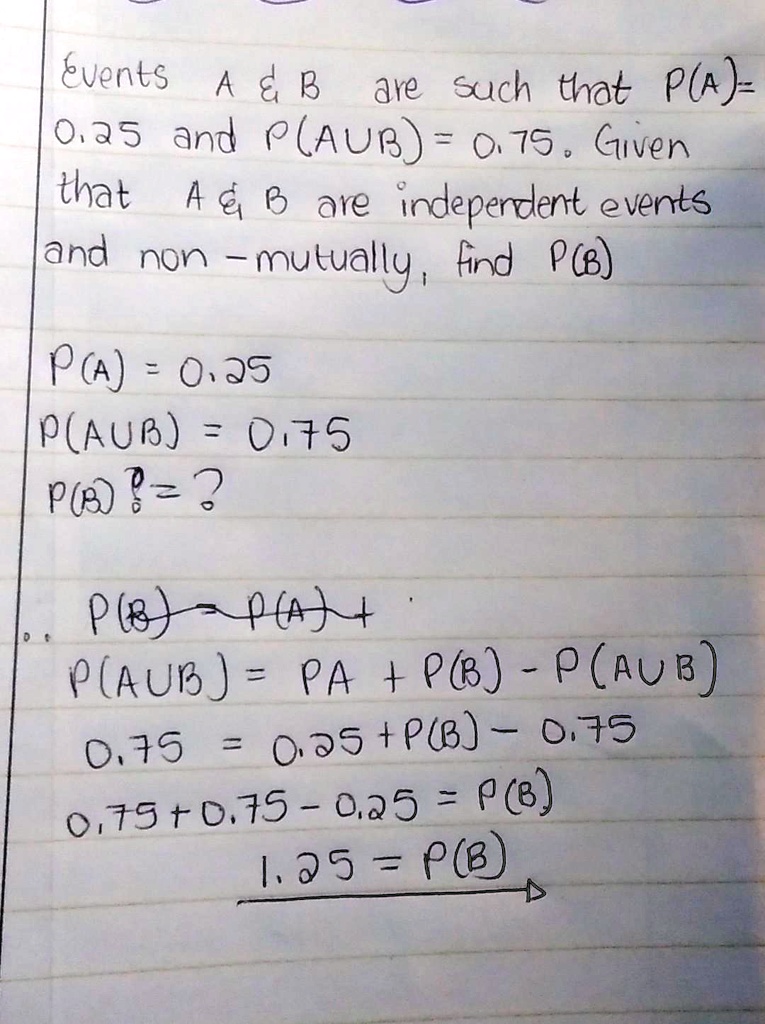 Events A & B are such that P(A)=
0.25 and P(AUB) = 0.75. Given
that A & B are independent events
and non-mutually, find P(B)
P(A) = 0.25
P(AUB) = 0.75
P(B) ?= ?
P(B) = P(A) +
P(AUB) = PA + P(B) - P(AUB)
0.75 = 0.25 + P(B) - 0.75
0.75 + 0.75 - 0.25 = P(B)
1.25 = P(B)